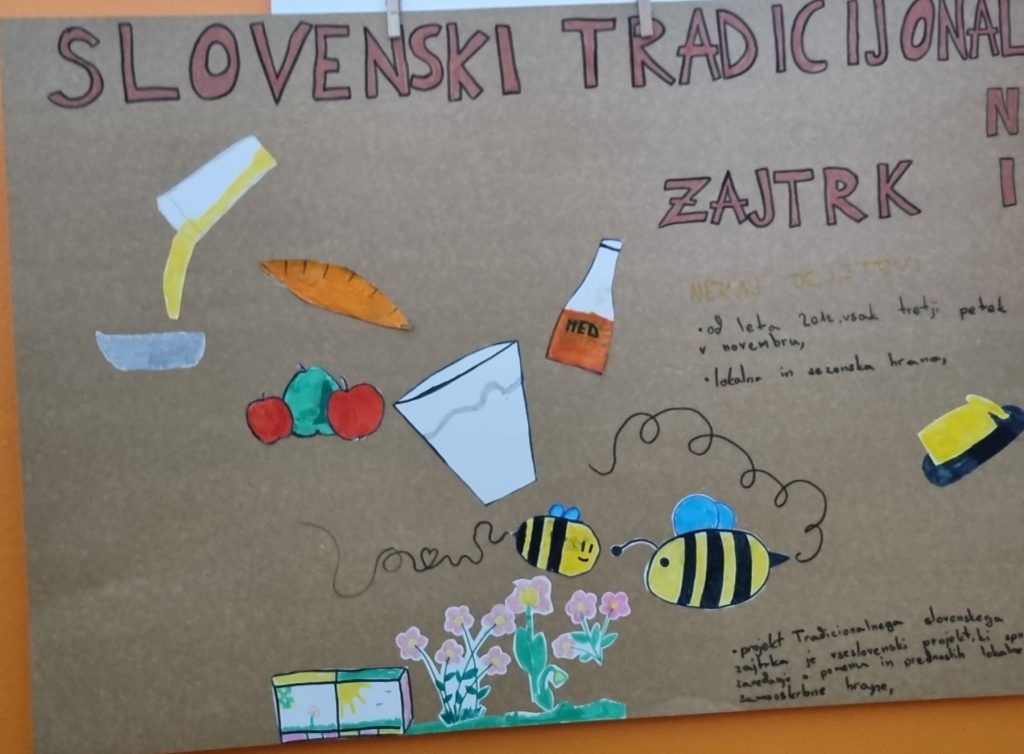 SLOVENSKI TRADICIJONAL
N
I
ZAJTRK
NEKAJ DEJSTEV:
• od leta 2012, vsak tretji petek
v novembru,
• lokalna in sezonska hrana,
MED
• projekt Tradicionalnega slovenskega
zajtrka je vseslovenski projekt, ki spo
zavedanje o pomenu in prednostih lokalne
samooskrbne hrane,